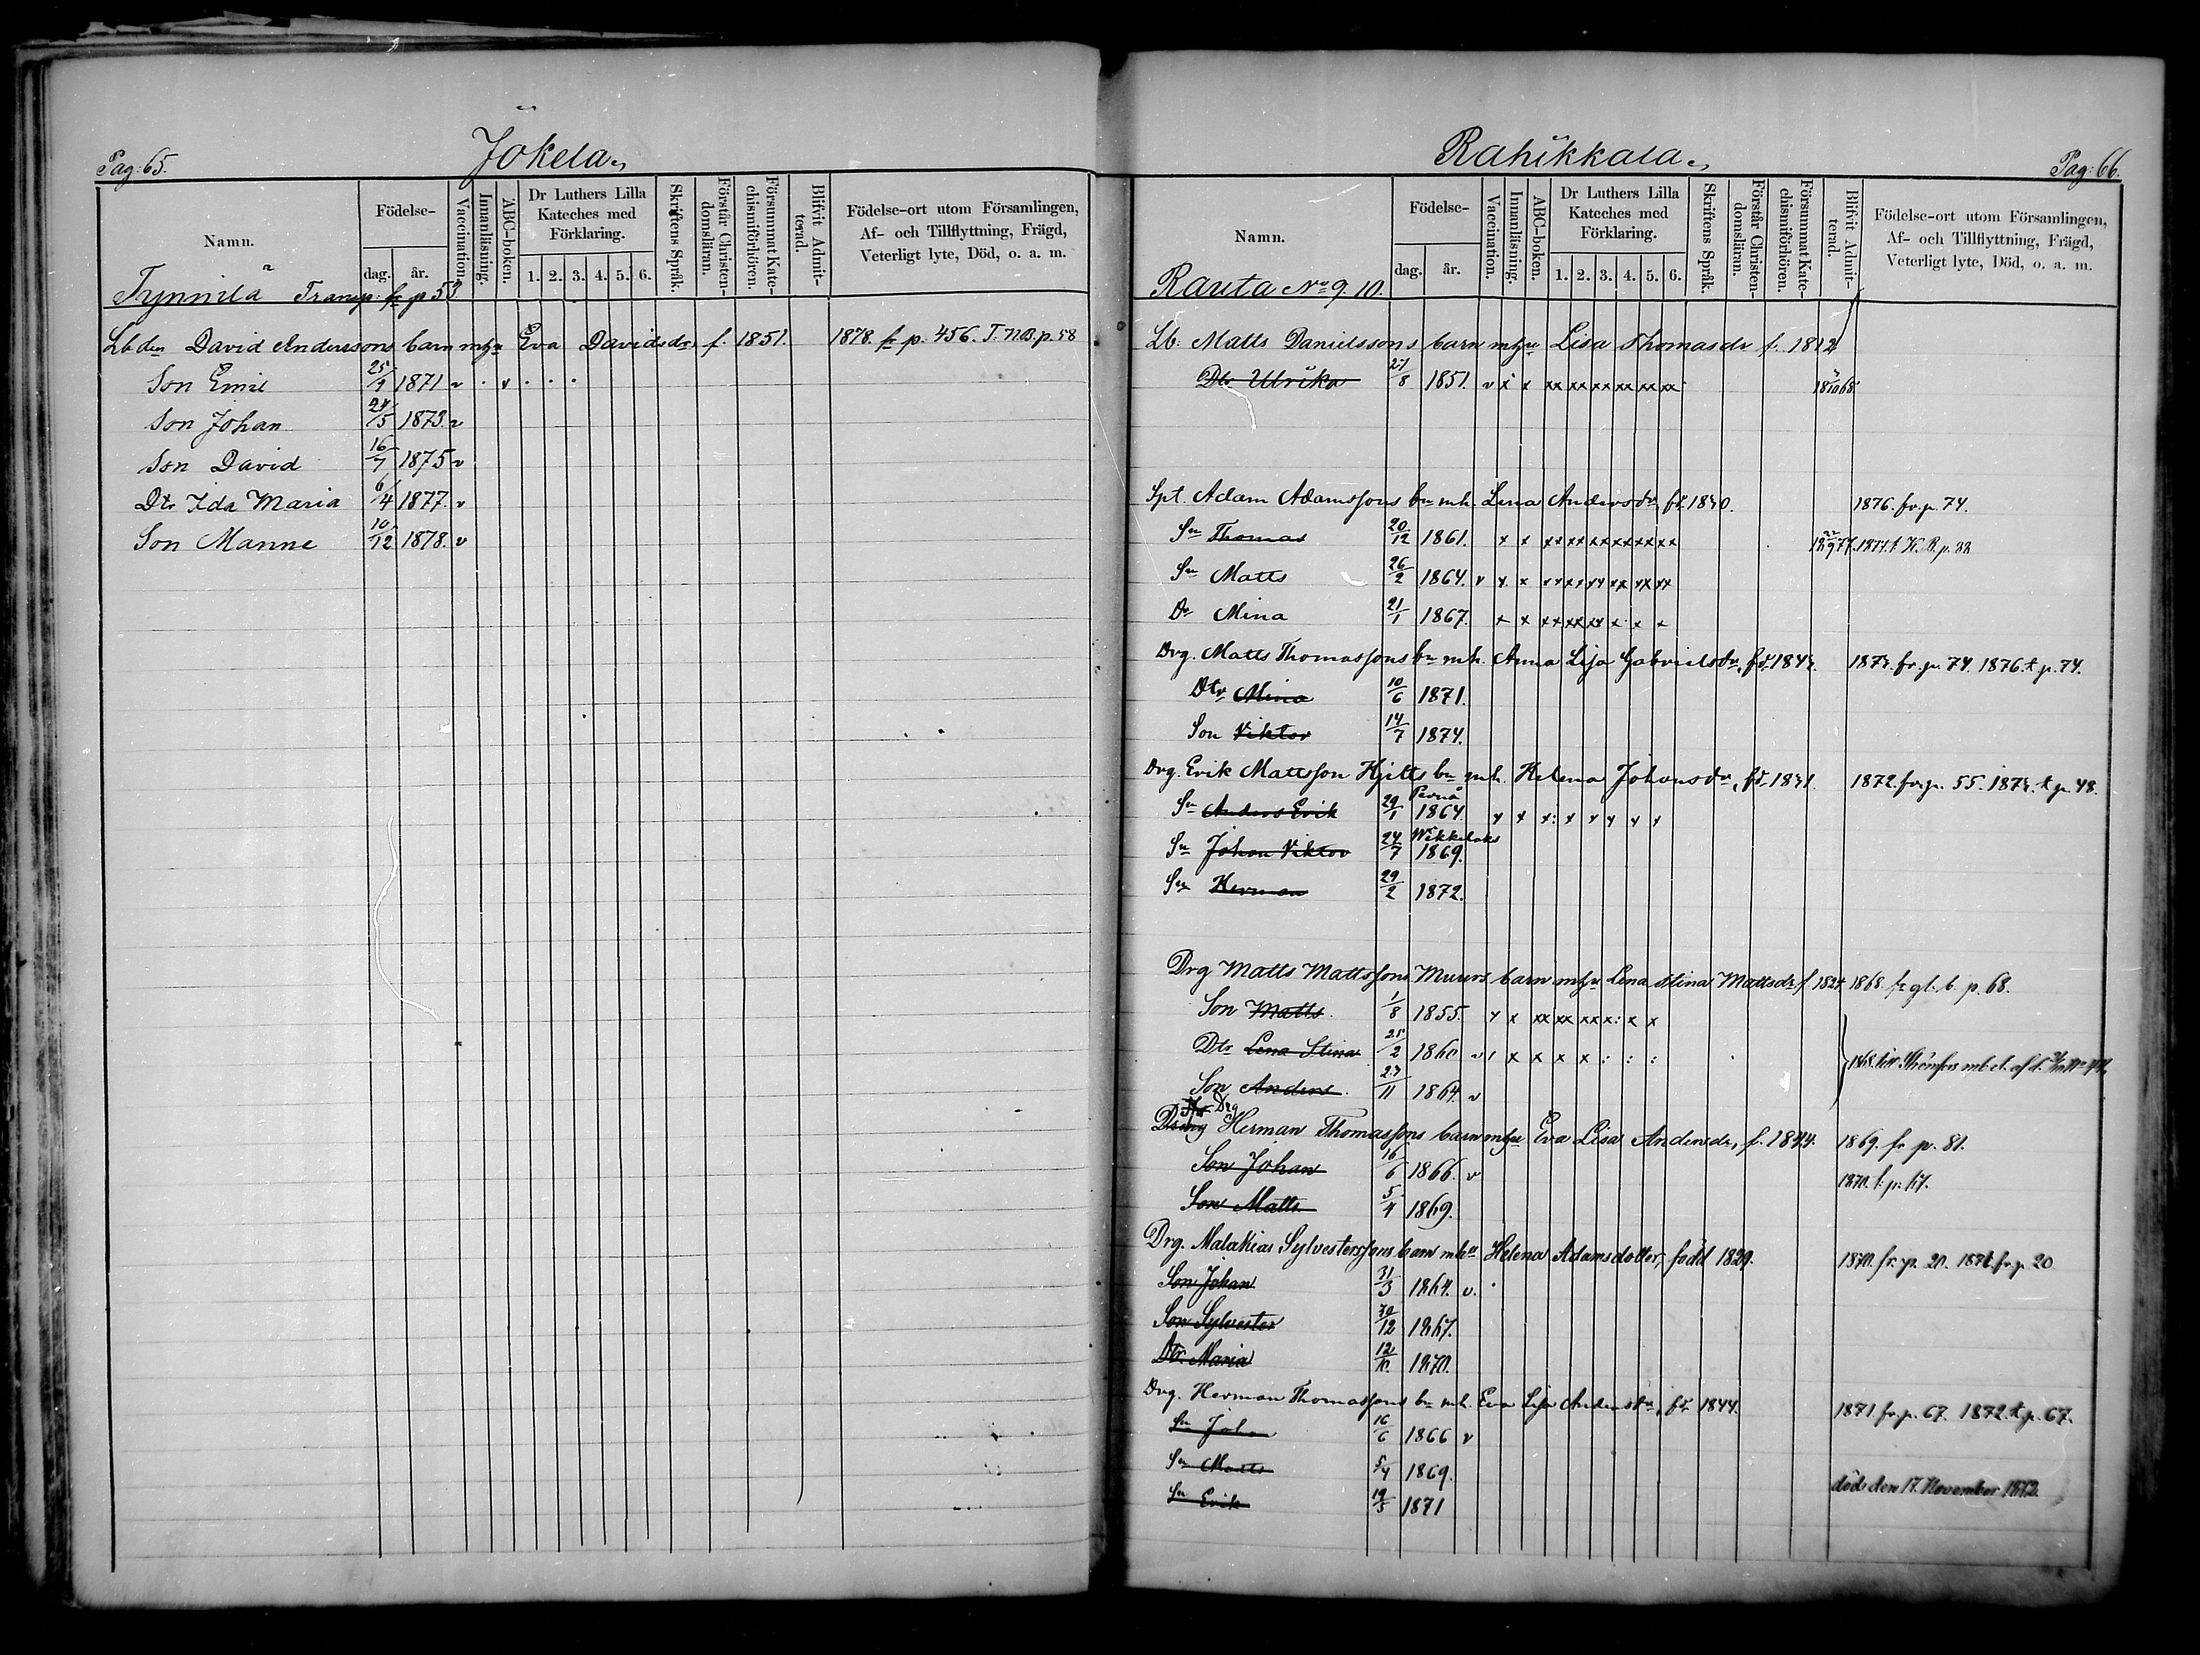 Pag: 65.
Jokela,
Namn.
Födelse-
dag.
år.
Vaccination.
Innanläsning.
ABC-boken.
Dr Luthers Lilla
Kateches med
Förklaring.
1. 2. 3. 4. 5. 6.
Skriftens Språk.
Förstår Christen-
domsläran.
Försummat Kate-
chismiförhören.
Blifvit Admit-
terad.
Födelse-ort utom Församlingen,
Af- och Tillflyttning, Frägd,
Veterligt lyte, Död, o. a. m.
Tynnilä Transp. fr p 53
Lb den David Anderssons barn mhu Eva Davidsdr f. 1851. 1878. fr p. 456. T. N.B. p. 58
Son Emil 25/9 1871 v . v . . .
Son Johan 24/5 1873 v
Son David 16/7 1875 v
Dtr Ida Maria 6/4 1877. v
Son Manne 10/12 1878. v
Rahikkala,
Pag: 66.
Namn.
Födelse-
dag.
år.
Vaccination.
Innanläsning.
ABC-boken.
Dr Luthers Lilla
Kateches med
Förklaring.
1. 2. 3. 4. 5. 6.
Skriftens Språk.
Förstår Christen-
domsläran.
Försummat Kate-
chismiförhören.
Blifvit Admit-
terad.
Födelse-ort utom Församlingen,
Af- och Tillflyttning, Frägd,
Veterligt lyte, Död, o. a. m.
Rauta No 9. 10.
Lb. Matts Danielssons barn mhu Lisa Thomasdr f. 1812
Dtr Ulrika 27/8 1851. v x x xx xx xx xx xx xx
Spt. Adam Adamssons bn mh. Lena Andersdr, fd. 1830. 1876. fr. p. 74.
Sn Thomas 20/12 1861. x x xx xx xx xx xx xx
Sn Matts 26/2 1864. v x x xx xx xx xx xx xx
Dr Mina 21/1 1867. x x xx xx xx x x x
Drg. Matts Thomassons bn mh. Anna Lisa Gabrielsdr, fd. 1876. t. p. 74.
Dtr Mina 10/6 1871.
Son Viktor 14/7 1874.
Drg. Erik Mattsson Hjelts bn mh. Helena Johansdr, fd. 1872. fr. p. 55. t. p. 48.
Sn Anders Erik 29/1 Pernå 1864. x x x: x x x x x
Sn Johan Viktor 24/7 1869.
Sn Herman 29/2 1872.
Drg Matts Mattssons Murers barn mhu Lena Stina Mattsdr f 1824 1868. fr gl. b. p. 68.
Son Matts. 1/8 1855. x x xx xx xx x: x x
Dtr Lena Stina 25/2 1860 v x x x x : : :
Son Anders. 23/11 1864. v
Drg Herman Thomassons barn mhu Eva Lisa Andersdr, f. 1844. 1869. fr p. 81.
Son Johan 16/6 1866. v 1870. t. p. 67.
Son Matts 5/4 1869.
Drg. Malakias Sylvesterssons barn mhu Helena Adamsdotter, född 1829. 1870. fr. p. 20. fr. p. 20
Son Johan 31/3 1864. v.
Son Sylvester 30/12 1867.
Dtr. Maria 12/10 1870.
Drg. Herman Thomassons bn mh. Eva Lisa Andersdr, fd. 1844. 1871. fr. p. 67. 1872. t. p. 67.
Sn Johan 16/6 1866 v
Sn Matts 5/4 1869.
Sn Erik 19/5 1871 död den 17. November 1872.